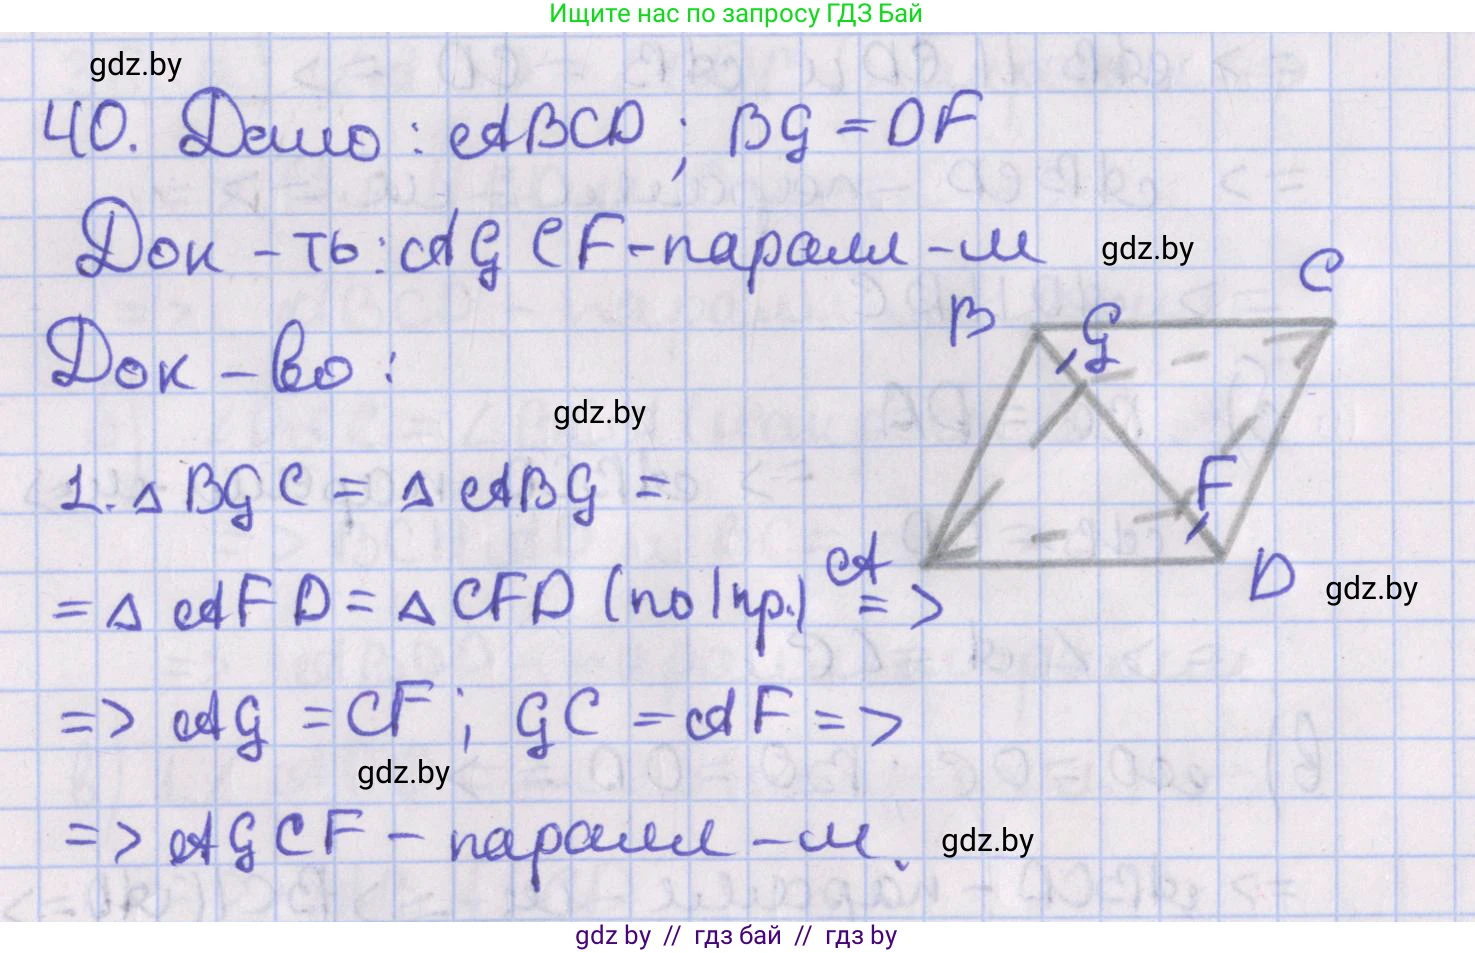 Ищите нас по запросу ГДЗ Бай
gdz.by
40. Дано: ABCD; BG = DF
Док-ть: AGCF-паралл-м
gdz.by
C
B
G
Док-во:
gdz.by
1. △ BGC = △ ABG =
F
A
D
gdz.by
= △ AFD = △ CFD (по 1 пр.) =>
=> AG = CF; GC = AF =>
gdz.by
=> AGCF - паралл-м.
gdz.by
gdz by // гдз бай // гдз by